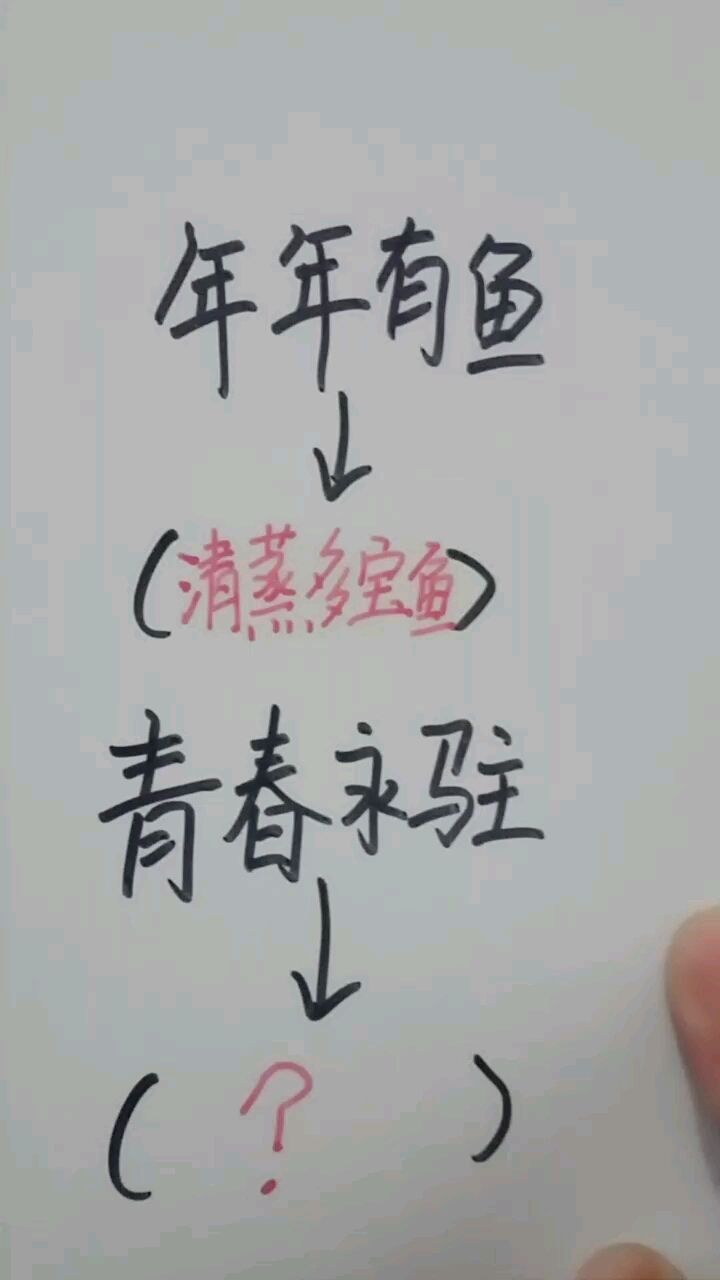 年年有鱼
(清蒸多宝鱼)
青春永驻
(?)